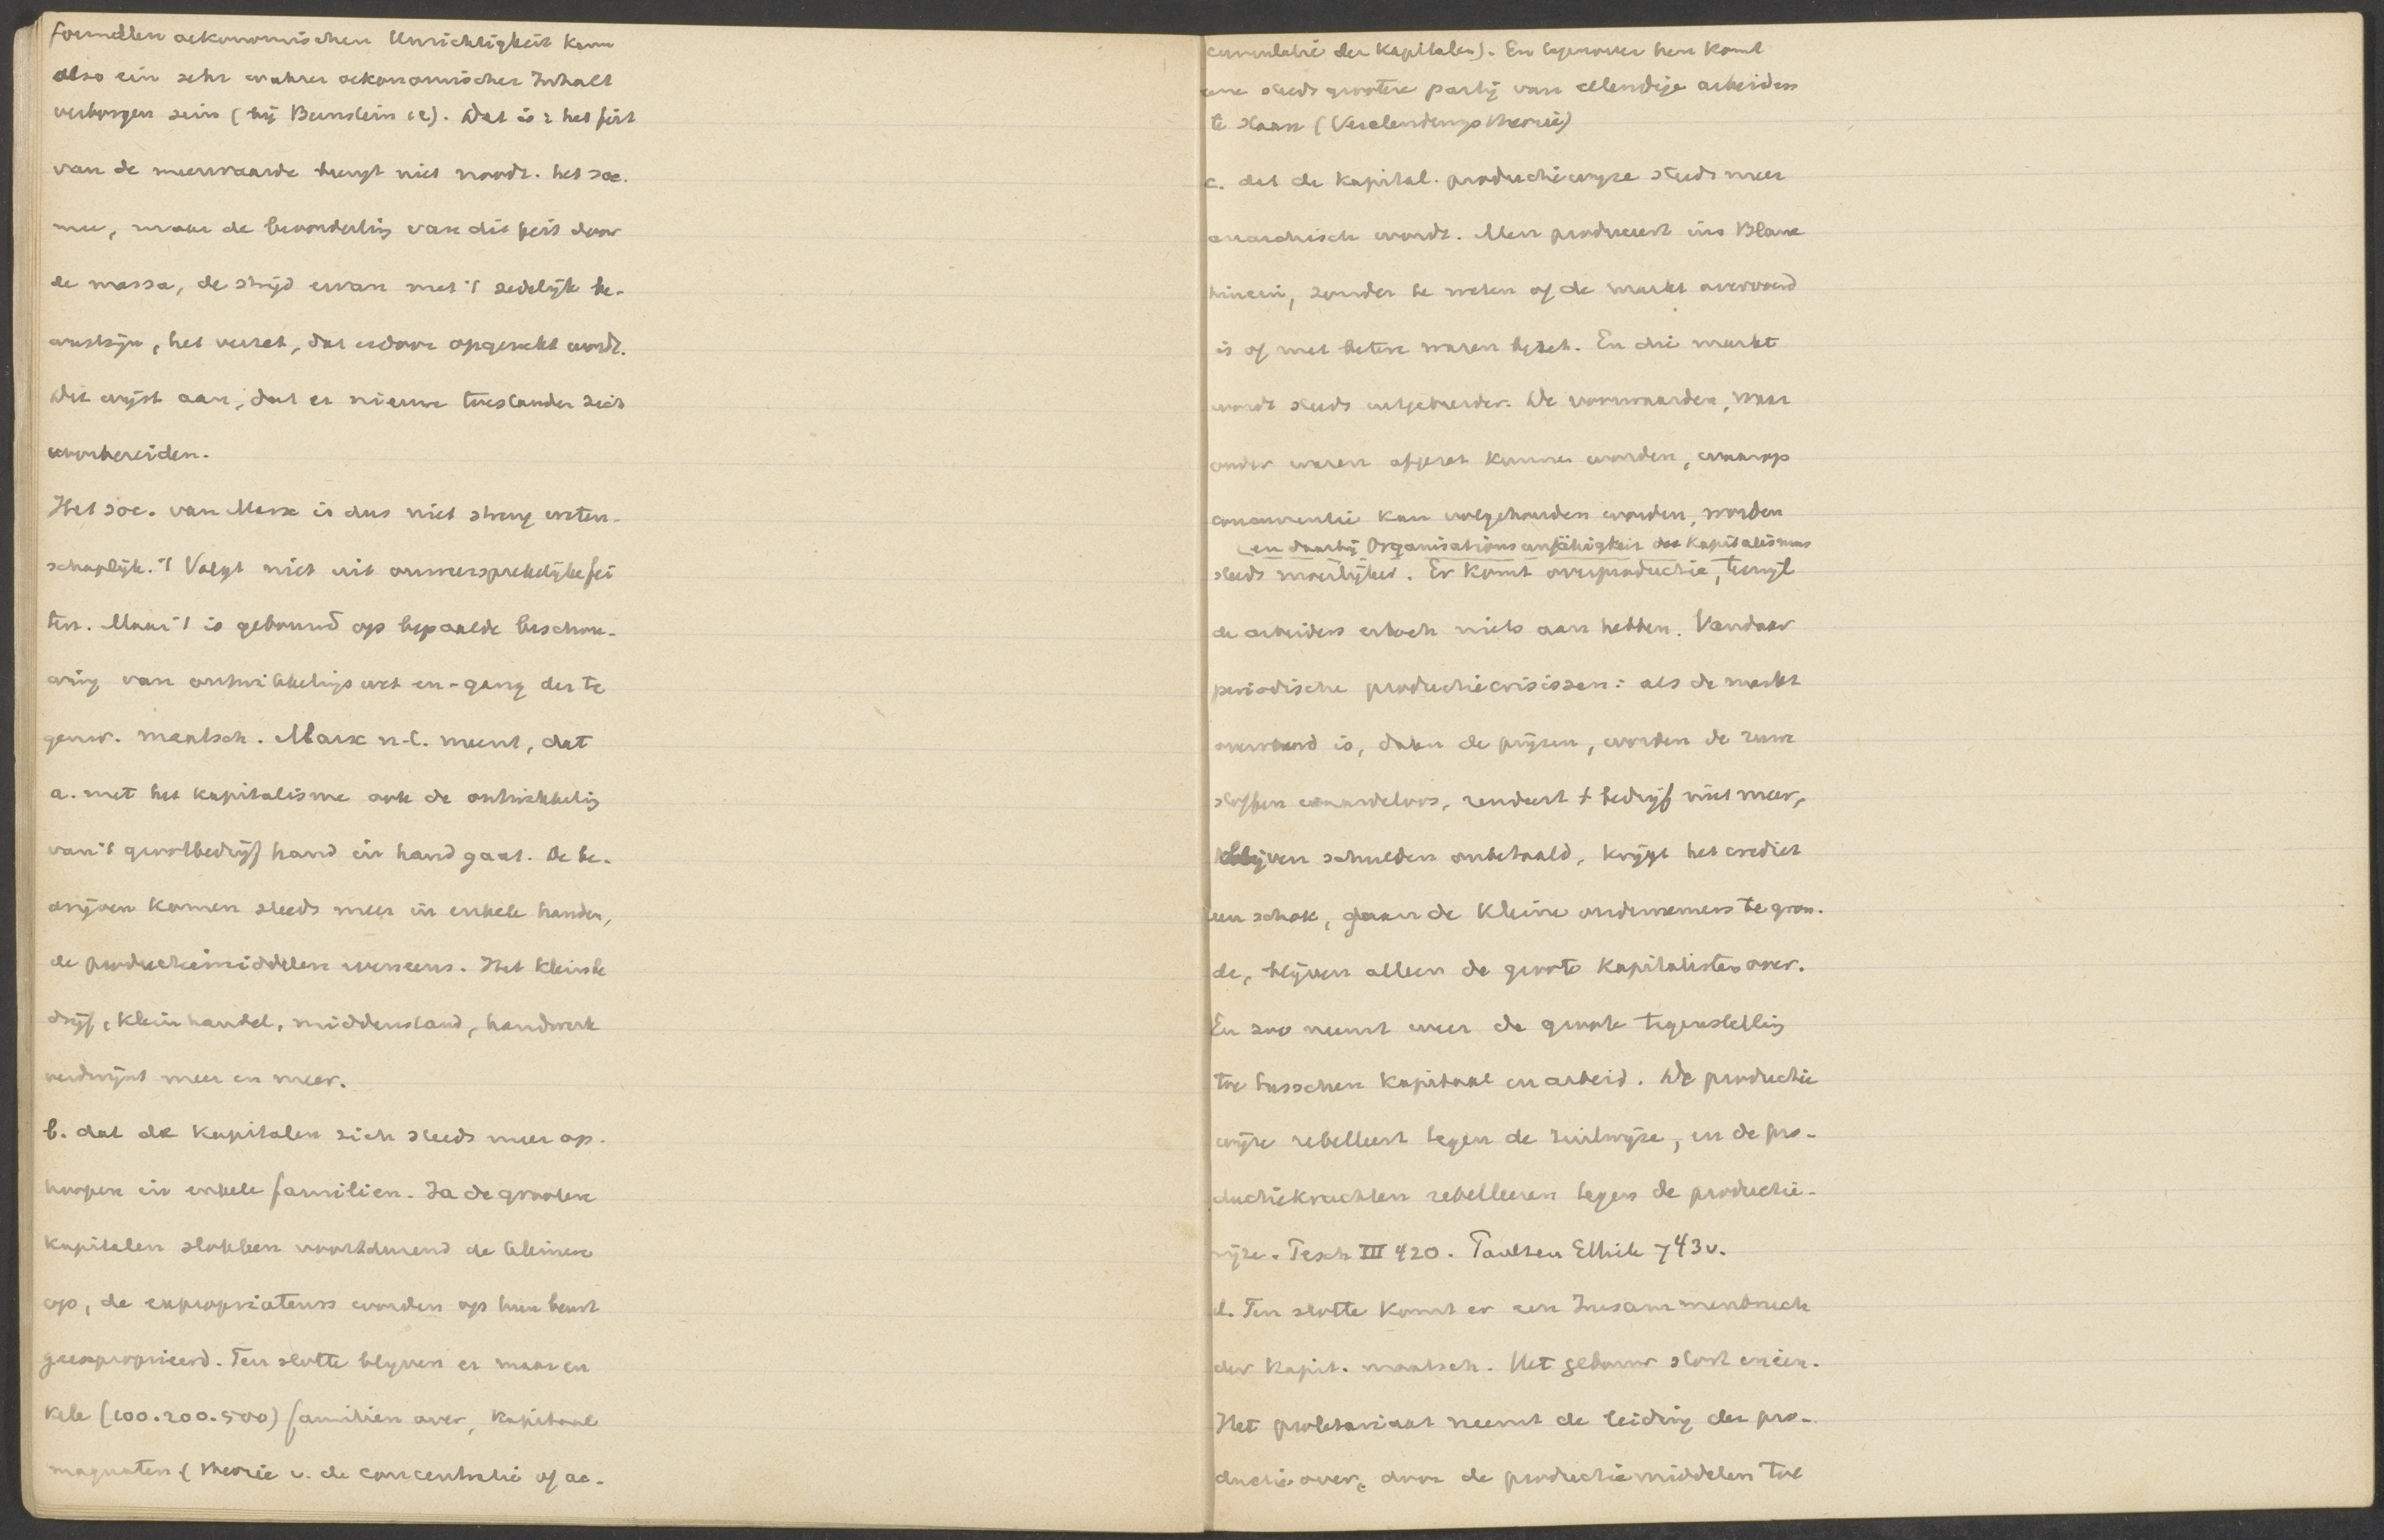 formellen oekonomischen Unrichtigkeit kann
also ein sehr wahrer oekonomischer Inhalt
verborgen sein (bij Bernstein 12). Dat is: het feit
van de meerwaarde brengt niet noodz. het soc.
mee, maar de beoordeling van dit feit door
de massa, de strijd ervan met 't zedelijk be-
wustzijn, het verzet, dat erdoor opgewekt wordt.
Dit wijst aan, dat er nieuwe toestanden zich
voorbereiden.
Het soc. van Marx is dus niet streng weten-
schaplijk. 't Volgt niet uit onweersprekelijke fei
ten. Maar 't is gebouwd op bepaalde beschou-
wing van ontwikkelingswet en -gang der te
genw. maatsch. Marx n.l. meent, dat
a. met het kapitalisme ook de ontwikkeling
van 't grootbedrijf hand in hand gaat. De be-
drijven komen steeds meer in enkele handen,
de productiemiddelen eveneens. Het kleinbe
drijf, kleinhandel, middenstand, handwerk
verdwijnt meer en meer.
b. dat de kapitalen zich steeds meer op-
hoopen in enkele familien. Ja de grootere
kapitalen slokken voortdurend de kleinere
op, de expropriateurs worden op hun beurt
geexproprieerd. Ten slotte blijven er maar en
kele (100.200.500) familien over, kapitaal
magnaten (theorie v. de concentratie of ac-
cumulatie der kapitalen). En tegenover hen komt
eene steeds grootere partij van ellendige arbeiders
te staan (Verelendungstheorie)
c. dat de kapital. productiewijze steeds meer
anarchisch wordt. Men produceert ins Blaue
hinein, zonder te weten of de markt overvoerd
is of met betere waren bezet. En die markt
wordt steeds uitgebreider. De voorwaarden, waar
onder waren afgezet kunnen worden, waarop
concurrentie kan volgehouden worden, worden
(en daarbij Organisationsunfähigkeit des Kapitalismus
steeds moeilijker. Er komt overproductie, terwijl
de arbeiders er toch niets aan hebben. Vandaar
periodische productiecrisissen: als de markt
overvoerd is, dalen de prijzen, worden de ruwe
stoffen waardeloos, rendeert 't bedrijf niet meer,
blijven schulden onbetaald, krijgt het crediet
een schok, gaan de kleine ondernemers te gron-
de, blijven alleen de groote kapitalisten over.
En zoo neemt weer de groote tegenstelling
toe tusschen kapitaal en arbeid. De productie
wijze rebelleert tegen de ruilwijze, en de pro-
ductiekrachten rebelleeren tegen de productie-
wijze. Pesch III 420. Paulsen Ethik 743v.
d. Ten slotte komt er een Zusammenbruch
der kapit. maatsch. Het gebouw stort ineen.
Het proletariaat neemt de leiding der pro-
ductie over, door de productiemiddelen tot